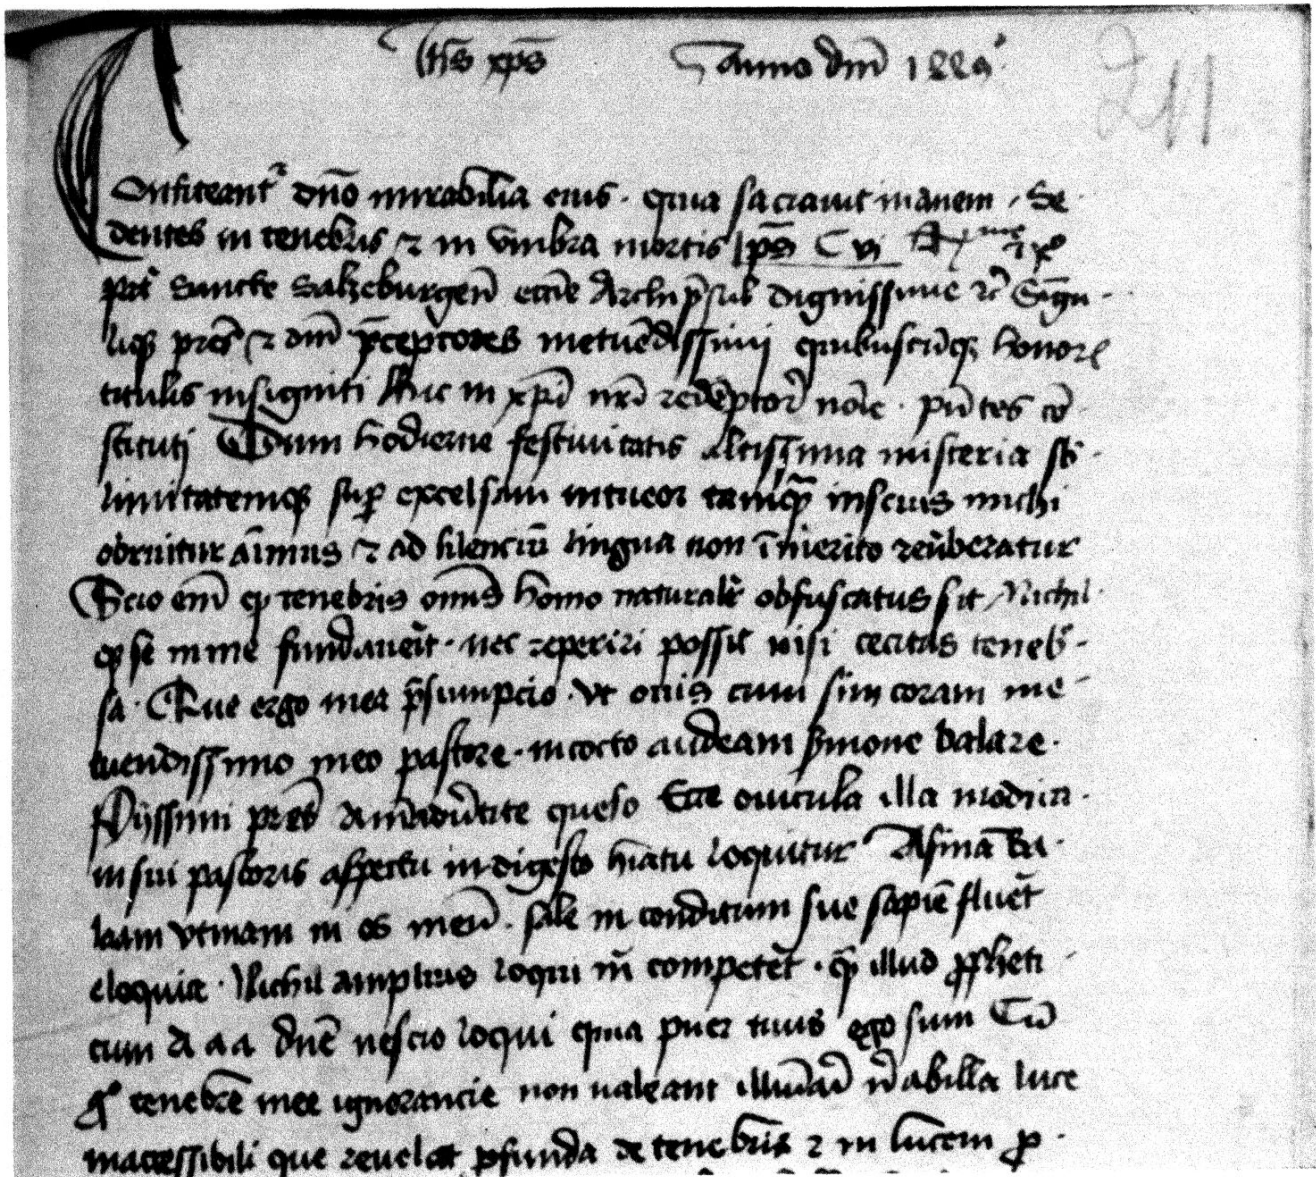 Ihs xps Anno dni 1449 211
Confiteantr dno mirabilia eius · quia saciauit inanem · Se
dentes in tenebris et in vmbra mortis ps Cvi
pr sancte Salzeburgen eccie Archipsul dignissime rc Singu
liqz pres et dni pceptores metuedissimi quibuscuqz honor
titulis insigniti huc in xpi nri redeptor noie · pntes co
stituti Dum hodierne festiuitatis altissima misteria sb
limitatemqz sup excelsam intueor tamqz inscius michi
obruitur aimus et ad silenciu lingua non imerito reuberatur
Scio em qz tenebris omis homo naturalr obfuscatus sit Nichil
qz se in me fundauerit · nec reperiri possit nisi cecitas teneb
sa · Que ergo mea psumpcio · vt ouis cum sim coram me
tuendissimo meo pastore · incocto audeam smone balare ·
Pijssimi pres aiaduertite queso Ecce ouicula illa modica
in sui pastoris aspectu indigesto hiatu loquitur Asina Ba
laam vtinam in os meu · sale in conditum sue sapie fluet
eloquia · Nichil amplius loqui m competet · qz illud ppheti
cum A a a dne nescio loqui quia puer tuus ego sum Cu
g tenebre mee ignorancie non valeant illuiari n ab illa luce
inaccessibili que reuelat pfunda de tenebris et in lucem p